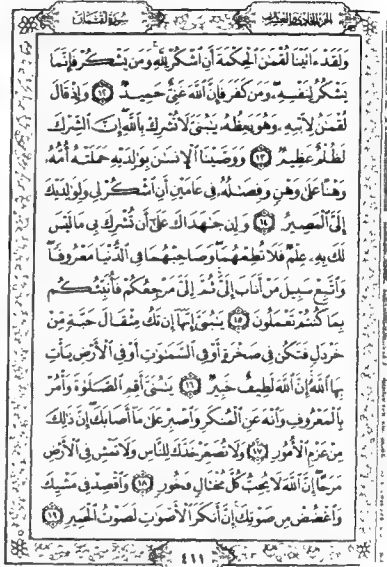 الجزء الحادي والعشرون سورة لقمان
وَلَقَدْ ءَاتَيْنَا لُقْمَٰنَ ٱلْحِكْمَةَ أَنِ ٱشْكُرْ لِلَّهِ وَمَن يَشْكُرْ فَإِنَّمَا
يَشْكُرُ لِنَفْسِهِۦ وَمَن كَفَرَ فَإِنَّ ٱللَّهَ غَنِىٌّ حَمِيدٌ ١٢ وَإِذْ قَالَ
لُقْمَٰنُ لِٱبْنِهِۦ وَهُوَ يَعِظُهُۥ يَٰبُنَىَّ لَا تُشْرِكْ بِٱللَّهِ إِنَّ ٱلشِّرْكَ
لَظُلْمٌ عَظِيمٌ ١٣ وَوَصَّيْنَا ٱلْإِنسَٰنَ بِوَٰلِدَيْهِ حَمَلَتْهُ أُمُّهُۥ
وَهْنًا عَلَىٰ وَهْنٍ وَفِصَٰلُهُۥ فِى عَامَيْنِ أَنِ ٱشْكُرْ لِى وَلِوَٰلِدَيْكَ
إِلَىَّ ٱلْمَصِيرُ ١٤ وَإِن جَٰهَدَاكَ عَلَىٰٓ أَن تُشْرِكَ بِى مَا لَيْسَ
لَكَ بِهِۦ عِلْمٌ فَلَا تُطِعْهُمَا وَصَاحِبْهُمَا فِى ٱلدُّنْيَا مَعْرُوفًا
وَٱتَّبِعْ سَبِيلَ مَنْ أَنَابَ إِلَىَّ ثُمَّ إِلَىَّ مَرْجِعُكُمْ فَأُنَبِّئُكُم
بِمَا كُنتُمْ تَعْمَلُونَ ١٥ يَٰبُنَىَّ إِنَّهَآ إِن تَكُ مِثْقَالَ حَبَّةٍ مِّنْ
خَرْدَلٍ فَتَكُن فِى صَخْرَةٍ أَوْ فِى ٱلسَّمَٰوَٰتِ أَوْ فِى ٱلْأَرْضِ يَأْتِ
بِهَا ٱللَّهُ إِنَّ ٱللَّهَ لَطِيفٌ خَبِيرٌ ١٦ يَٰبُنَىَّ أَقِمِ ٱلصَّلَوٰةَ وَأْمُرْ
بِٱلْمَعْرُوفِ وَٱنْهَ عَنِ ٱلْمُنكَرِ وَٱصْبِرْ عَلَىٰ مَآ أَصَابَكَ إِنَّ ذَٰلِكَ
مِنْ عَزْمِ ٱلْأُمُورِ ١٧ وَلَا تُصَعِّرْ خَدَّكَ لِلنَّاسِ وَلَا تَمْشِ فِى ٱلْأَرْضِ
مَرَحًا إِنَّ ٱللَّهَ لَا يُحِبُّ كُلَّ مُخْتَالٍ فَخُورٍ ١٨ وَٱقْصِدْ فِى مَشْيِكَ
وَٱغْضُضْ مِن صَوْتِكَ إِنَّ أَنكَرَ ٱلْأَصْوَٰتِ لَصَوْتُ ٱلْحَمِيرِ ١٩
٤١١